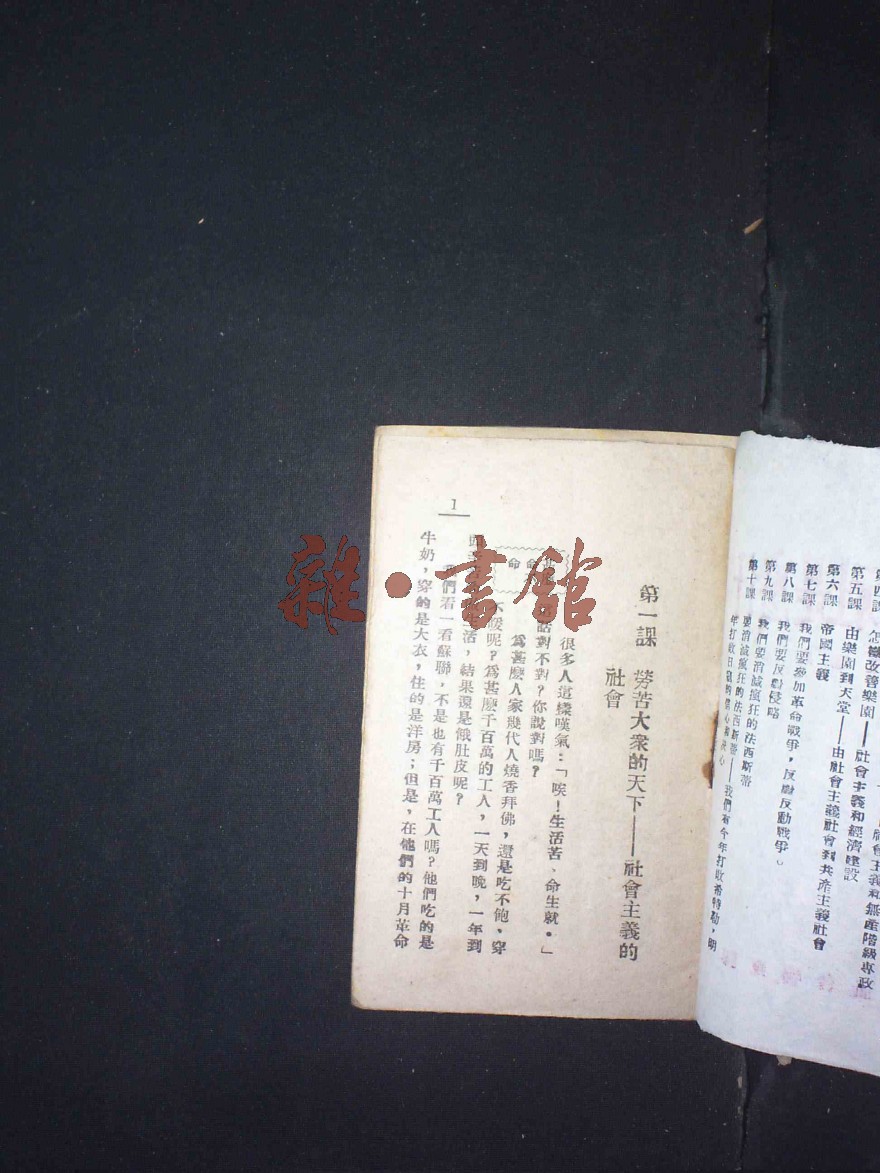 第五課　由樂園到天堂——由社會主義社會到共產主義社會
第六課　帝國主義
第七課　我們要參加革命戰爭，反對反動戰爭。
第八課　我們要反對侵略
第九課　我們要消滅瘋狂的法西斯蒂
第十課　要消滅瘋狂的法西斯蒂——我們有今年打敗希特勒，明
年打敗日寇的信心和決心
第一課　勞苦大衆的天下——社會主義的
社會
很多人這樣嘆氣：「唉！生活苦、命生就。」
話對不對？你說對嗎？
爲甚麽人家幾代人燒香拜佛，還是吃不飽，穿
不暖呢？爲甚麽千百萬的工人，一天到晚，一年到
活，結果還是餓肚皮呢？
我們看一看蘇聯，不是也有千百萬工人嗎？他們吃的是
牛奶，穿的是大衣，住的是洋房；但是，在他們的十月革命
1
雜·書館